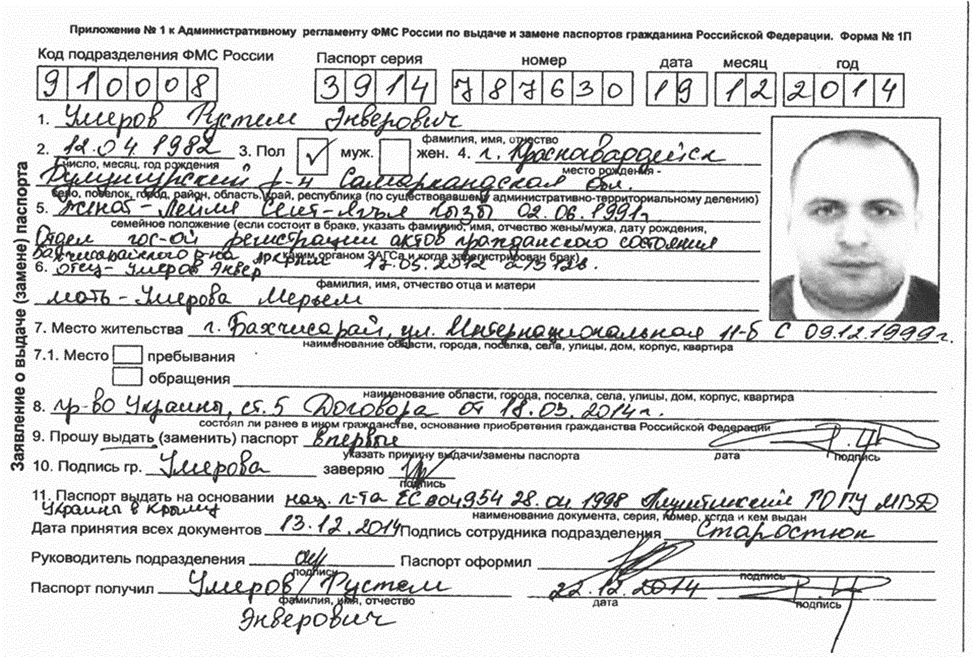 Приложение № 1 к Административному регламенту ФМС России по выдаче и замене паспортов гражданина Российской Федерации. Форма № 1П
Код подразделения ФМС России Паспорт серия номер дата месяц год
910008 3914 787630 19 12 2014
Заявление о выдаче (замене) паспорта
1. Умеров Рустем Энверович
фамилия, имя, отчество
2. 12.04 1982 3. Пол ✓ муж. жен. 4. г. Красногвардейск
число, месяц, год рождения место рождения -
Булунгурский р-н Самаркандская обл.
село, поселок, город, район, область, край, республика (по существовавшему административно-территориальному делению)
5. женат - Лейля Сеит-Ягъя кызы 02.06.1991г.
семейное положение (если состоит в браке, указать фамилию, имя, отчество жены/мужа, дату рождения,
Отдел гос-ой регистрации актов гражданского состояния
каким органом ЗАГСа и когда зарегистрирован брак)
Бахчисарайского р-на 2012
6. отец - Умеров Энвер
фамилия, имя, отчество отца и матери
мать - Умерова Мерьем
7. Место жительства г. Бахчисарай, ул. Интернациональная 11-б с 09.12.1999г.
наименование области, города, поселка, села, улицы, дом, корпус, квартира
7.1. Место пребывания
обращения
наименование области, города, поселка, села, улицы, дом, корпус, квартира
8. гр-во Украины, ст. 5 Договора от 18.03.2014г.
состоял ли ранее в ином гражданстве, основание приобретения гражданства Российской Федерации
9. Прошу выдать (заменить) паспорт впервые
указать причину выдачи/замены паспорта дата подпись
10. Подпись гр. Умерова заверяю
подпись
11. Паспорт выдать на основании нац. п-та ЕС 904954 28.04 1998 РОГУ МВД
наименование документа, серия, номер, когда и кем выдан
Украины в Крыму
Дата принятия всех документов 13.12.2014 Подпись сотрудника подразделения Старостюк
Руководитель подразделения Паспорт оформил
подпись подпись
Паспорт получил Умеров Рустем 22.12.2014
фамилия, имя, отчество дата подпись
Энверович